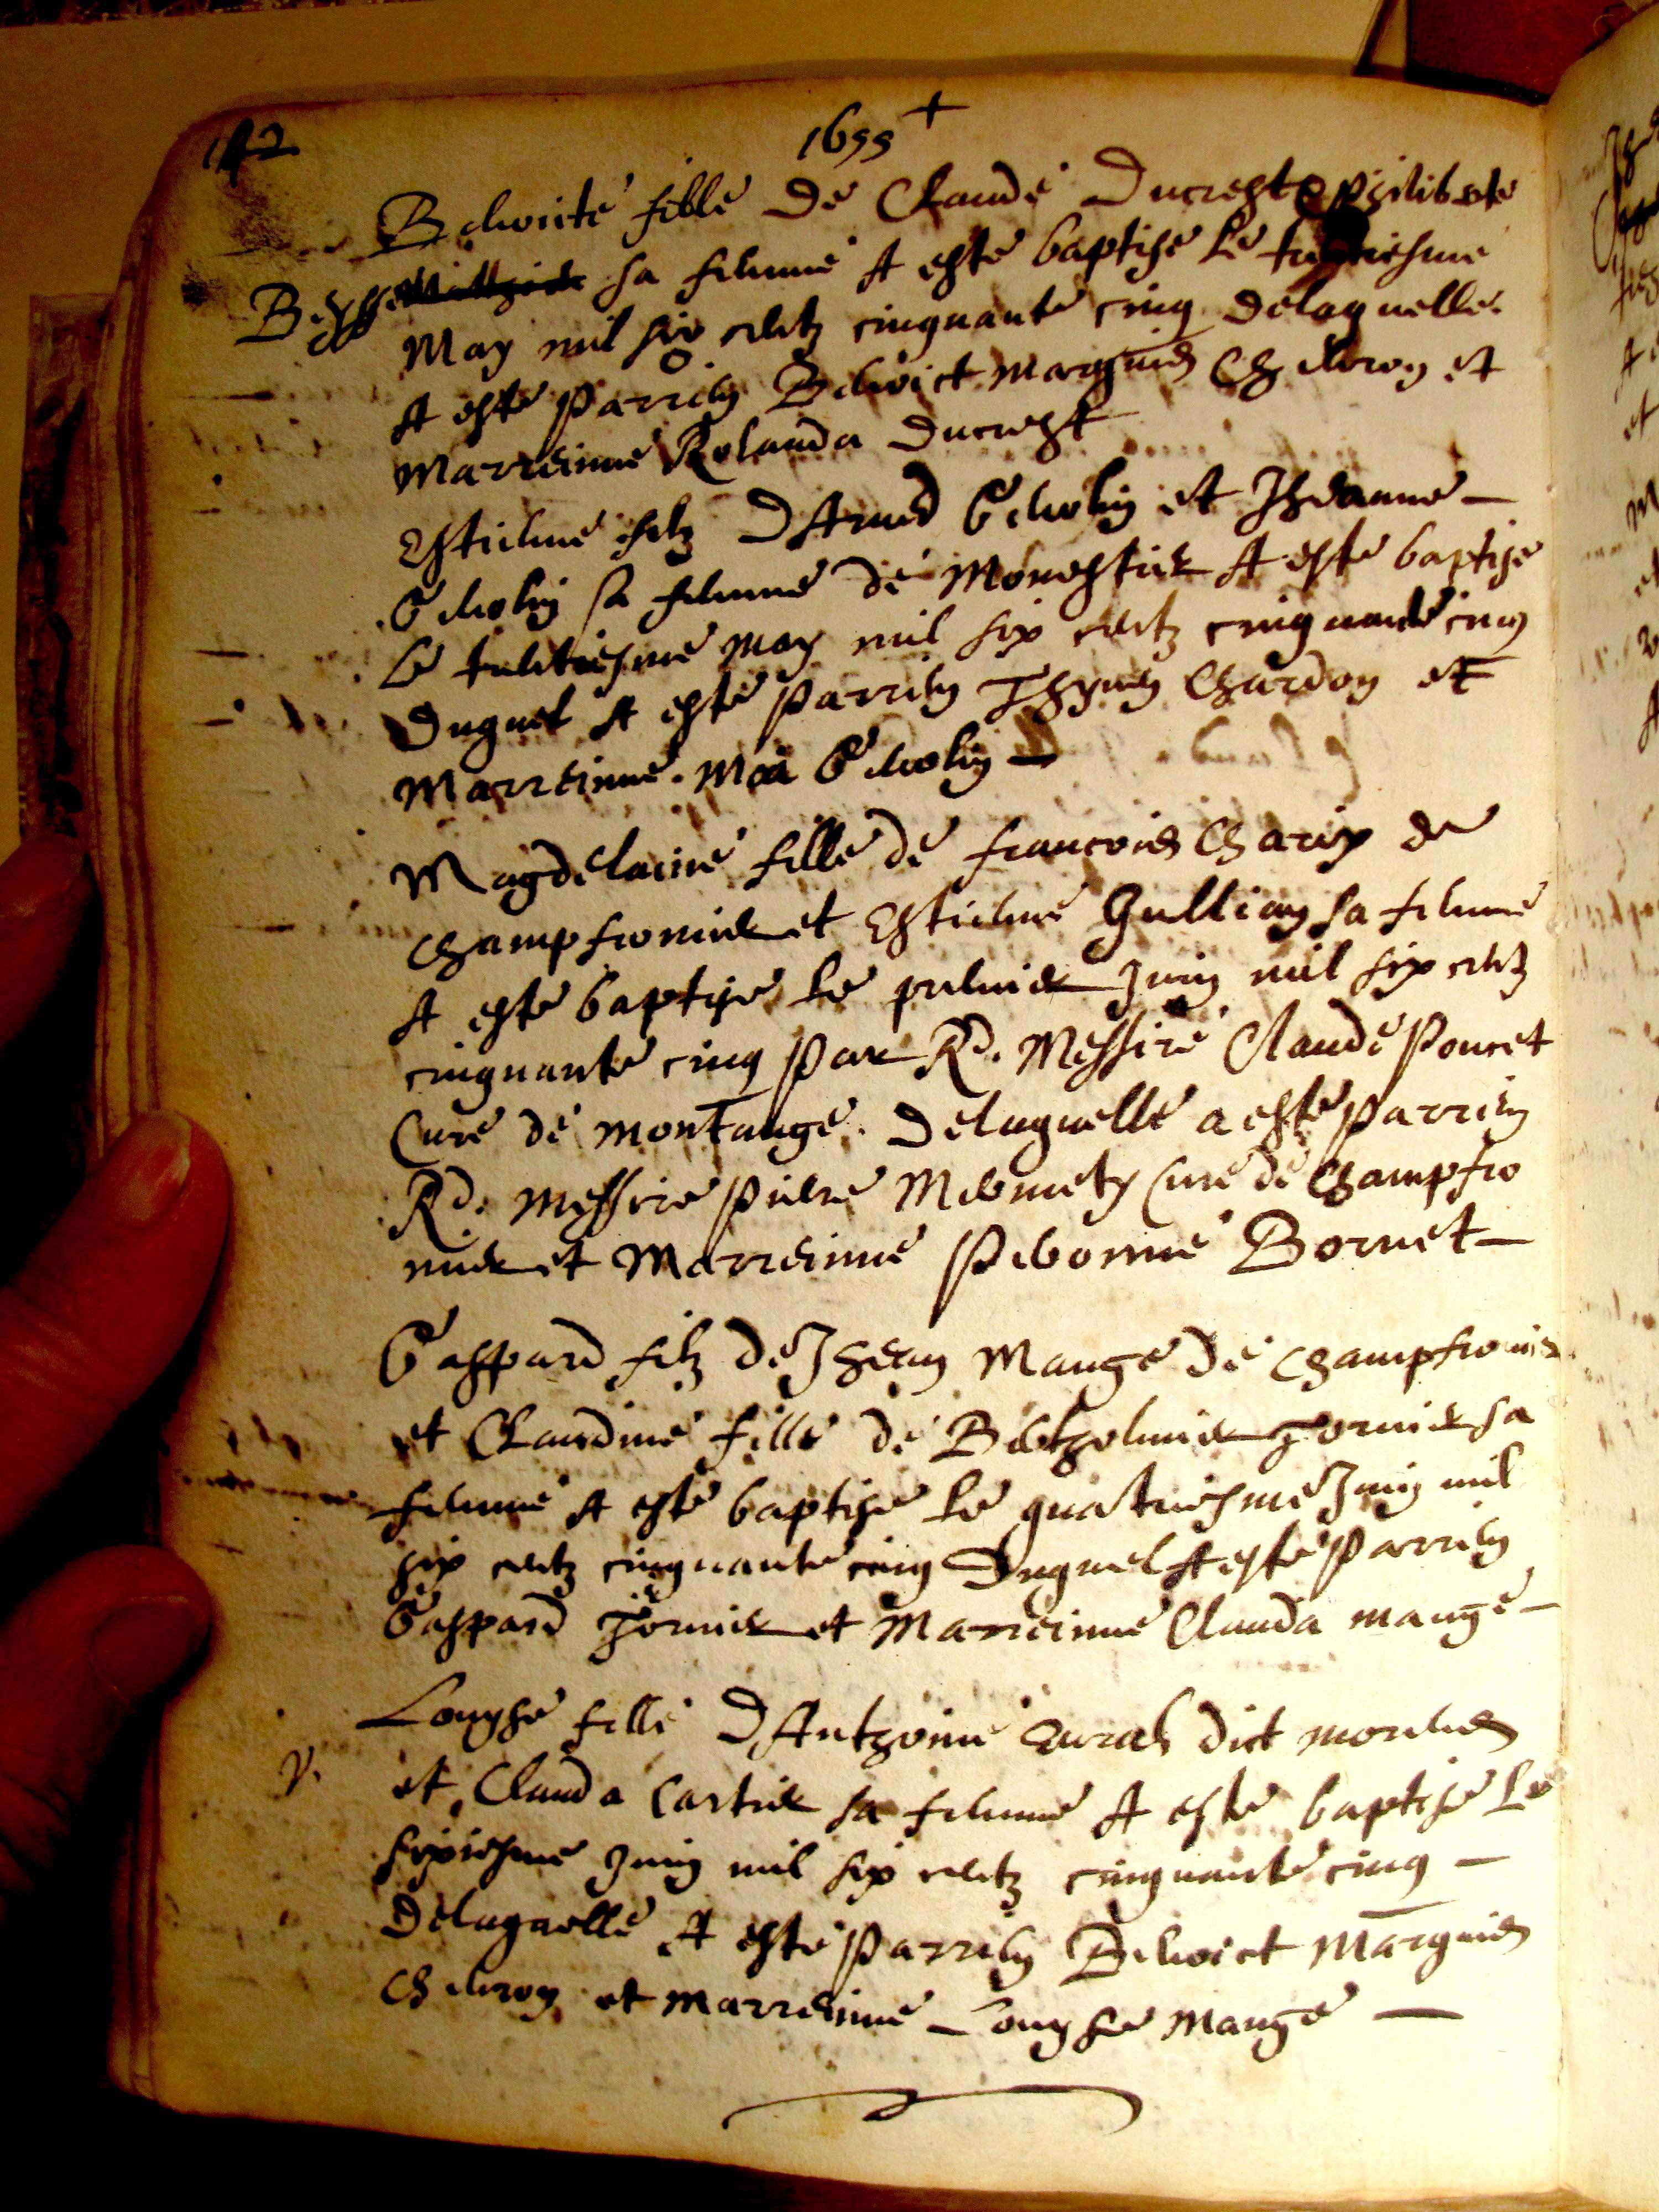 142
1655 +
Benoite fille de Claude Ducrest & philiberte
sa femme A este baptise le trentiesme
May mil six centz cinquante cinq Delaquelle
A este Parrein Benoict Marquis Chevron et
Marreinne Rolanda Ducrest
Estienne filz DAymed Genolin et Jheanne
Genolin sa femme de Monestier A este baptise
Le trentiesme May mil six centz cinquante cinq
Duquel A este Parrein Thyven Chardon et
Marreinne Mya Genolin
Magdelaine fille de francois Charix de
Champfromier et Estienne Gullion sa femme
A este baptise le premier Juin mil six centz
cinquante cinq Par Rd. Messire Claude Poncet
Cure de Montange. Delaquelle a este Parrein
Rd. Messire Pierre Mermety Cure de Champfro
mier et Marreinne Pernonne Bornet
Gaspard filz de Jhean Mange de Champfromier
et Claudine fille de Bertholmier Tornier sa
femme A este baptise le quatriesme Juin mil
six centz cinquante cinq Duquel A este Parrein
Gaspard Tornier et Marreinne Clauda Mange
Louyse fille DAnthoine dict
V. et Clauda Cartier sa femme A este baptise Le
sixiesme Juin mil six centz cinquante cinq
Delaquelle A este Parrein Benoict Marquis
Chevron et Marreinne Louyse Mange